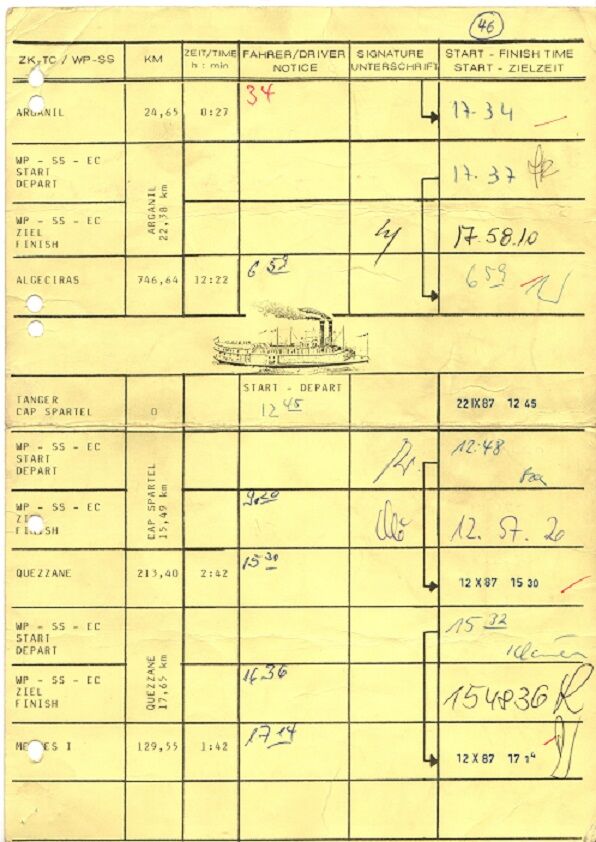 46
ZK-TC / WP-SS KM ZEIT/TIME h : min FAHRER/DRIVER NOTICE SIGNATURE UNTERSCHRIFT START - FINISH TIME START - ZIELZEIT
34
ARGANIL 24,65 0:27 17.34
WP - SS - EC
START
DEPART
17.37
ARGANIL
22,38 km
WP - SS - EC
ZIEL
FINISH
17.58.10
ALGECIRAS 746,64 12:22 6 59 6 59
START - DEPART
TANGER
CAP SPARTEL 0 12 45 22 IX 87 12 45
WP - SS - EC
START
DEPART
12.48
CAP SPARTEL
15,49 km
WP - SS - EC
ZIEL
FINISH
12.57.20
QUEZZANE 213,40 2:42 15 30 12 X 87 15 30
WP - SS - EC
START
DEPART
15 32
QUEZZANE
17,65 km
WP - SS - EC
ZIEL
FINISH
16 36
154836
129,55 1:42 17 14 12 X 87